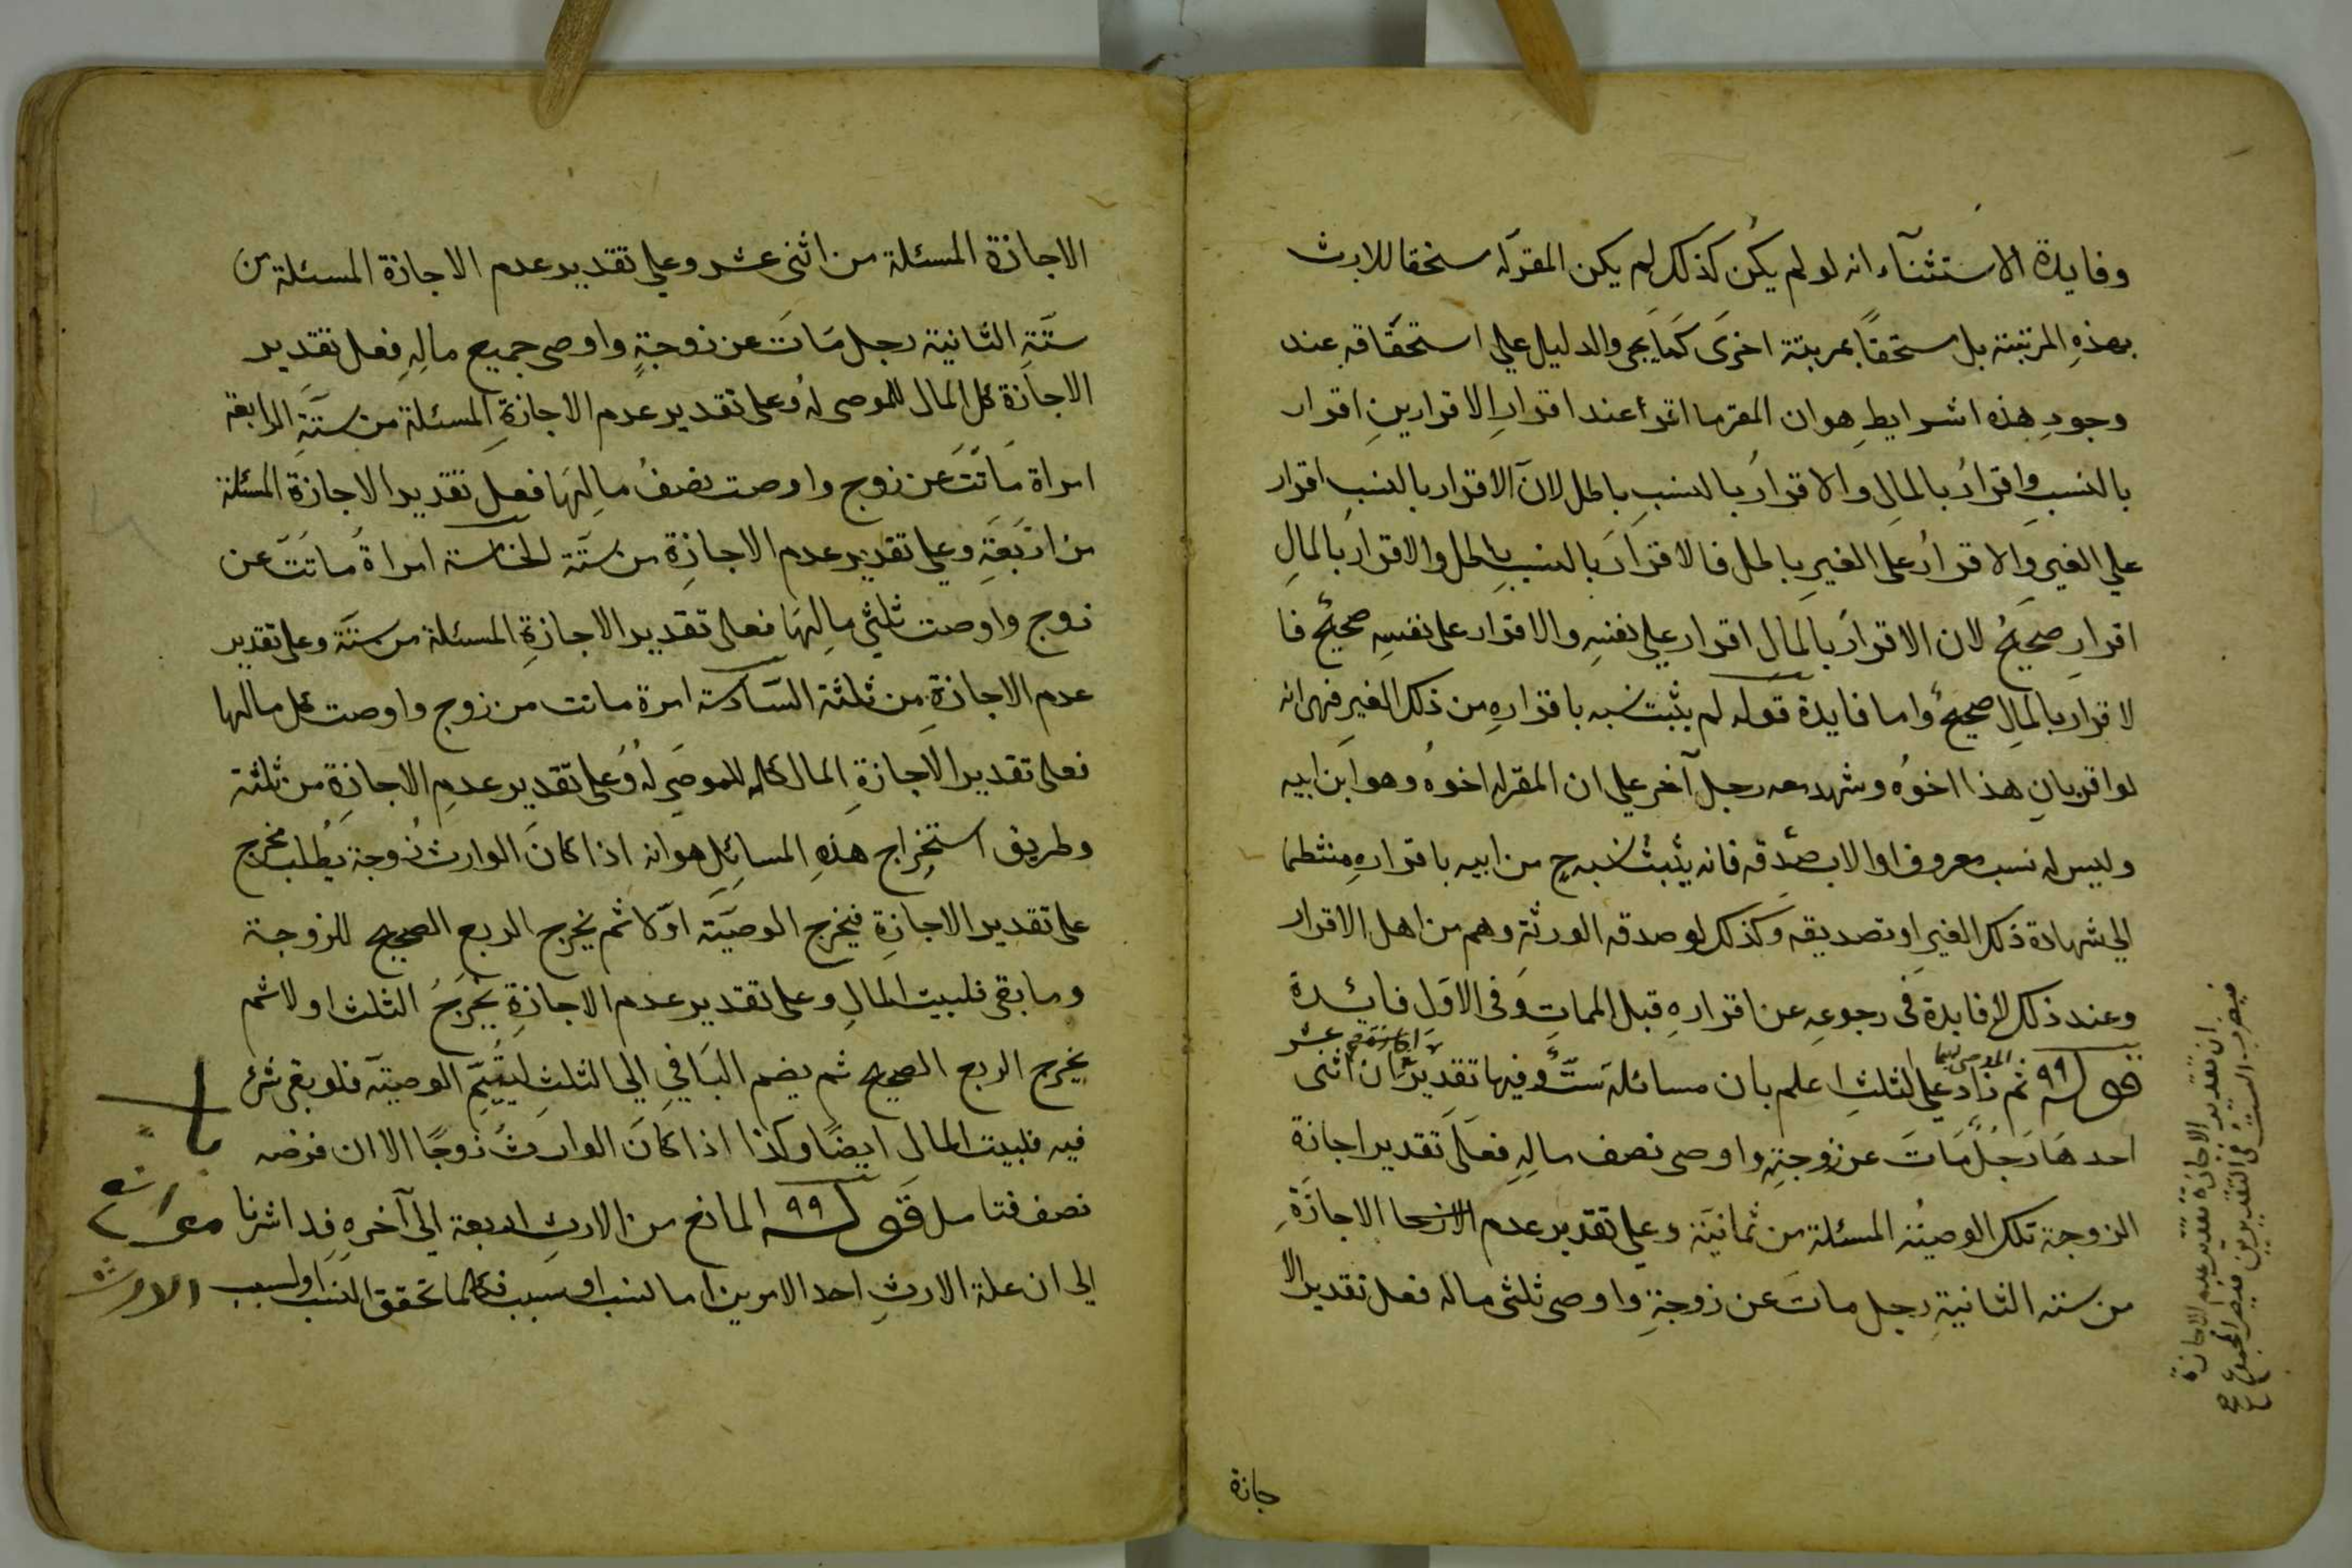 وفايدة الاستثنآء انه لو لم يكن كذلك لم يكن المقرّله ستحقا للارث
بهذهِ المرتبة بل مستحقًا بمرتبة اخرَى كمَا يَجى والدليل علي استحقَاقه عند
وجودِ هذه اشرايطِ هو ان المقر ما اقرأ عند اقرارِ الاقرارينِ اقرار
بالنسبِ واقرارُ بالمالِ والاقرارُ بالنسبِ باطل لانّ الاقرار بالنسبِ اقرار
علي الغير والاقرارُ على الغيرِ باطل فالاقرارَ بالنسبِ باطل والاقرار بالمالِ
اقرارِ صحيحٌ لان الاقرارُ بالمال اقرار علي نفسِه والاقرار على نفسِه صحيحٌ فا
لا قرار بالمالِ صحيحٌ واما فايدة قوله لم يثبت نسبه باقرارِه من ذلك الغير فهى انه
لو اقر بانِ هذا اخوُه وشهد معه رجل آخر علي ان المقر له اخوهُ وهو ابَن ابيه
وليس له نسب معروف اوا لاب صدّقه فانه يثبتُ نسبه ح من ابيه باقرارهِ منتظما
الي شهادة ذلك الغير او تصديقه وكذلك لو صدقه الورثة وهم من اهل الاقرار
وعند ذلك لا فايدة فى رجوعهِ عن اقرارهِ قبل المماتِ وفى الاوّل فائدة
قوله ٩٩ ثم زاد علي الثلثِ اعلم بان مسائله ستٌّ وفيها تقديرُان اثنى
الموصى
عشر
احدهَا رَجُلٌ مَاتَ عن زوجتِه واوصى نصف مالِهِ فعلَى تقدير اجازة
الزوجة تلك الوصيُة المسئلة من ثمانيَة وعلي تقدير عدم الاجازَةِ
من ستة الثانيةِ رجل ماتَ عن زوجةٍ واوصى ثلثى ماله فعل تقدير الا
جازة
ان تقدير الاجازة تقدير عدم الاجازة
فيضرب الستُ فى التقديرين فيصير المجموع
الاجازة المسئلة من اثنى عشر وعلي تقدير عدم الاجازة المسئلة من
ستَّةِ الثانية رجل مَاتَ عن زوجةٍ واوصى جميع مالِهِ فعل تقدير
الاجازَة كل المال للموصى لهُ وعلى تقدير عدم الاجازةِ المسئلة من ستّةِ الرابعة
امراة مَاتَتَ عَن زوج واوصت نصفُ مالِهَا فعل تقدير الاجازة المسئلة
من اربَعَةِ وعلي تقدير عدم الاجازِةِ من ستَّة الخامسة امراةُ مَاتَتَ عن
زوج واوصت ثلثي مالِهَا فعلى تقدير الاجازةِ المسئلة من ستَّة وعلى تقدير
عدم الاجازةِ من ثلثة السَادسة امرة ماتت من زوج واوصت كل مالها
فعلى تقدير الاجازةِ المال كله للموصَى لهُ وعلى تقدير عدمِ الاجازِةِ من ثلثة
وطريق استخِراج هذهِ المسائِل هو انه اذا كانَ الوارث زُوجة يُطلب مخرج
على تقدير الاجازةِ فيخرج الوصيَّة اوّلا ثم يخرج الربع الصحيح للزوجة
وما بقى فلبيت المالِ وعلى تقدير عدم الاجازةِ يُخرَجُ الثلث اولا ثم
يخرج الربع الصحيح ثم يضم البَافي الي الثلثِ ليُتِمِّ الوصيّة فلو بقى شئ
فيه فلبيت المال ايضًا وكذا اذا كانَ الوارثُ زوجًا الا ان فرضه
نصف فتامل قوله ٩٩ المانع من الارثِ اربعة الي آخرهِ قد اشرنا
الي ان علة الارثِ احد الامرين اما نسب او سبب فكلما تحقق النسب او لسبب الارث